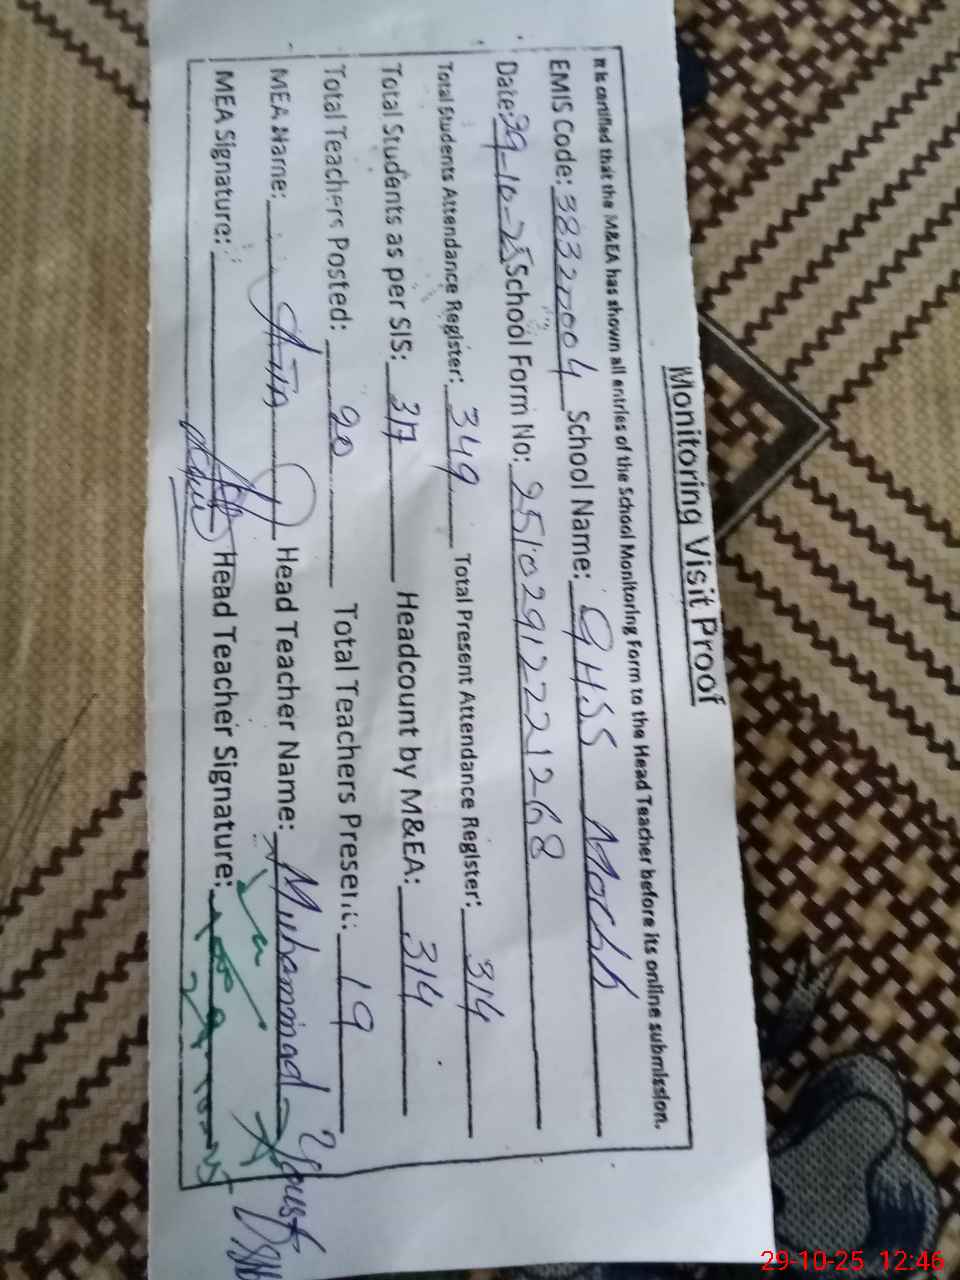 Monitoring Visit Proof
It is certified that the M&EA has shown all entries of the School Monitoring Form to the Head Teacher before its online submission.
EMIS Code: 38322004 School Name: GHSS Mochh
Date: 29-10-25 School Form No: 25102912221268
Total Students Attendance Register: 349 Total Present Attendance Register: 314
Total Students as per SIS: 317 Headcount by M&EA: 314
Total Teachers Posted: 20 Total Teachers Present: 19
MEA Name: Head Teacher Name: Muhammad Yousaf
MEA Signature: Head Teacher Signature:
29-10-25 12:46